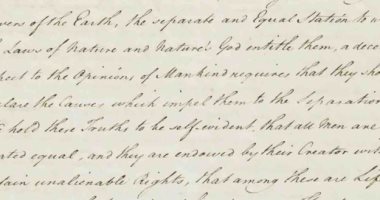 wers of the Earth, the separate and Equal Station to w
Laws of Nature and Nature's God entitle them, a dece
pect to the Opinions of Mankind requires that they sho
clare the Causes which impel them to the Separation
hold these Truths to be self-evident, that all Men are
ated equal, and they are endowed by their Creator with
tain unalienable Rights, that among these are Life